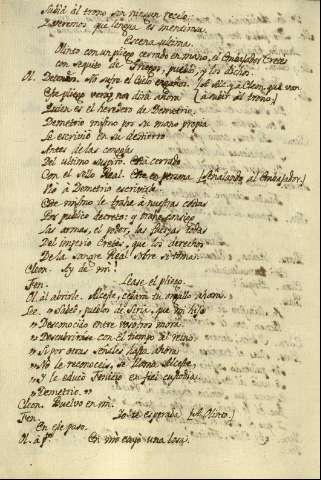 Subid al trono sin ningun recelo.
Veremos que lengua es mentirosa.
Escena ultima.
Olinto con un pliego cerrado en mano, el Embajador Cretes
con seguito de Griegos, pueblo, y los dichos.
Ol. Deteneos. No sufre el Cielo engaños. [A Alc. y à Cleon. que van
Este pliego veraz nos dirà ahora [à subir al trono.]
Quien es el heredero de Demetrio.
Demetrio mismo por su mano propia
Le escrivió en su destierro
Antes de las congojas
Del ultimo suspiro. Està cerrado
Con el sello Real. Este en persona [señalando al Embajador.]
Viò à Demetrio escrivirle.
Este mismo le trahe à nuestras costas
Por publico decreto: y trahe consigo
Las armas, el poder, las fuerzas todas
Del imperio Cretés, que los derechos
De la sangre Real sobre si toma.
Cleon. Ay de mi!
Fen. Lease el pliego.
Ol. al abrirle. Alceste, cesarà tu orgullo ahora.
Lee. „Sabed, pueblos de Siria, que mi hijo
„Desconocido entre vosotros mora.
„Descubrirase con el tiempo del reino.
„Si por otras señales hasta ahora
„No le reconoceis, se llama Alceste,
„Y le educó Fenicio en fiel custodia.
„Demetrio.„
Cleon. Buelvo en mi.
Fen. Yo te esperaba [A Olinto.]
En ese paso.
Ol. à pte. En mi cayó una losa.